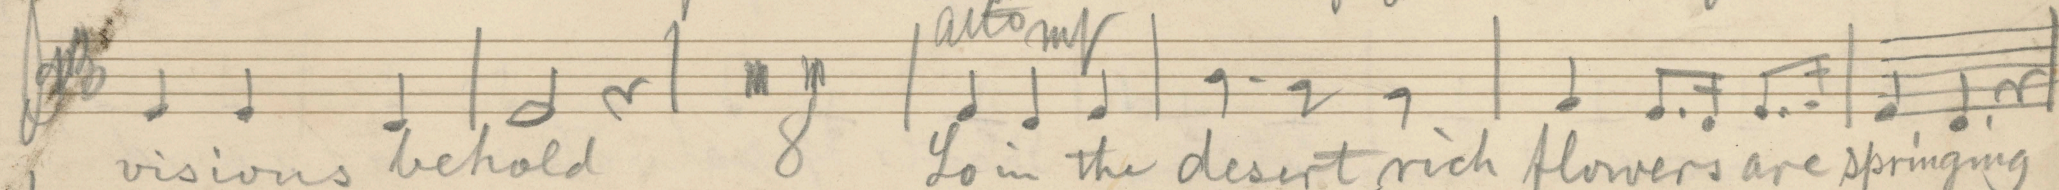 alto mf
visions behold 8 Lo in the desert rich flowers are springing